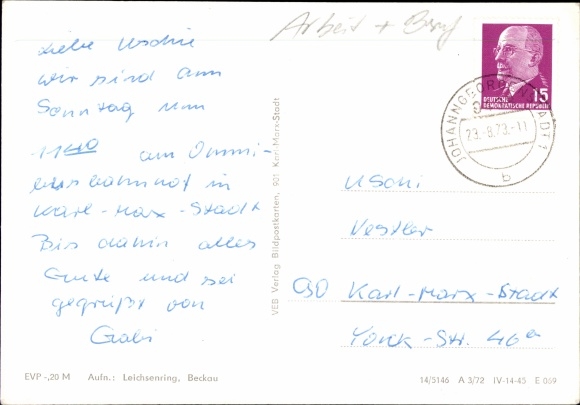 Arbeit + Beruf
Liebe Uschie
wir sind am
Sonntag um
11 40 am Omni-
busbahnhof in
Karl-Marx-Stadt
Bis dahin alles
Gute und sei
gegrüßt von
Gabi
VEB Verlag Bildpostkarten, 901 Karl-Marx-Stadt
15
DEUTSCHE
DEMOKRATISCHE REPUBLIK
JOHANNGEORGENSTADT 1
23.-8.73.-11
b
Uschi
Vestler
90 Karl-Marx-Stadt
Yorck-Str. 46a
EVP -,20 M Aufn.: Leichsenring, Beckau
14/5146 A 3/72 IV-14-45 E 059